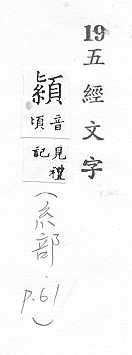 19五經文字
䫌音頃
見禮記
(糸部 p.61)